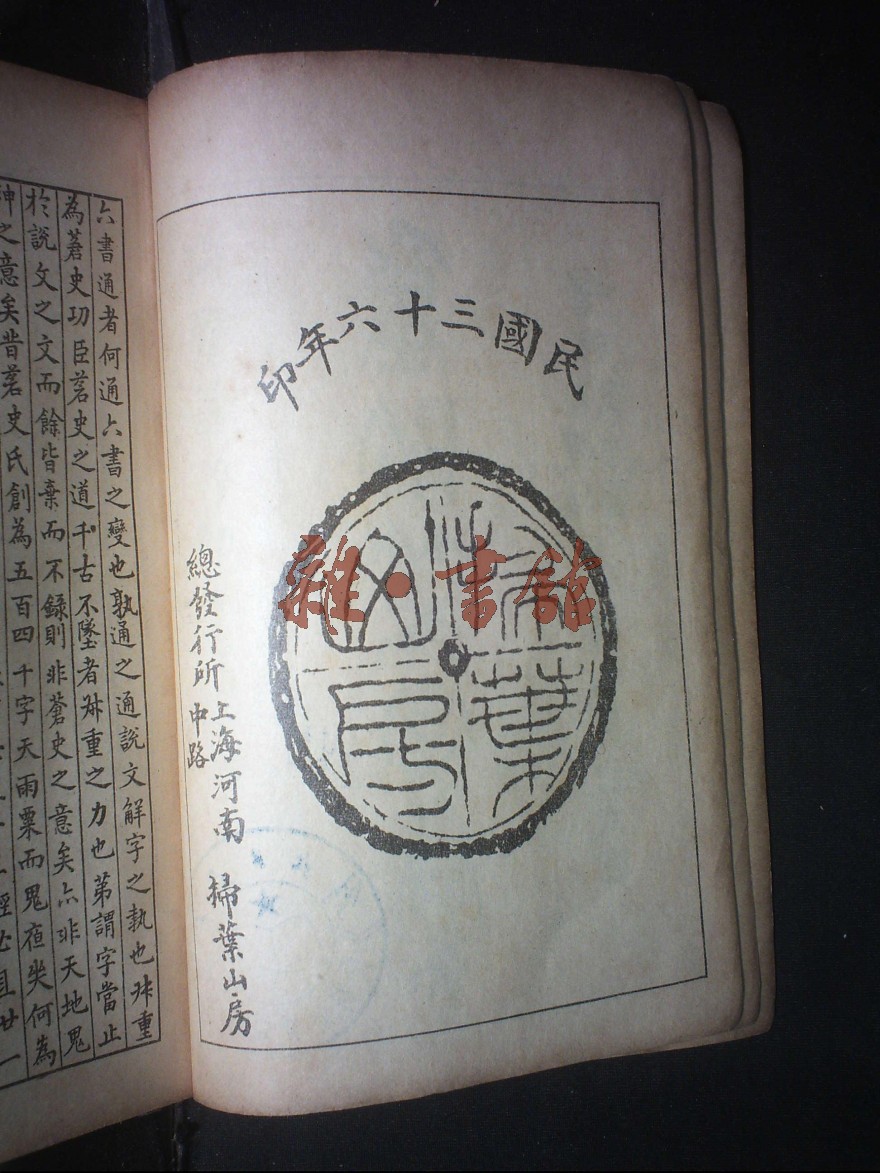 民國三十六年印
掃葉
山房
雜·書館
總發行所 上海河南中路 掃葉山房
六書通者何通六書之變也孰通之通說文解字之執也叔重
為蒼史功臣蒼史之道千古不墜者叔重之力也第謂字當止
於說文之文而餘皆棄而不錄則非蒼史之意矣亦非天地鬼
神之意矣昔蒼史氏創為五百四千字天雨粟而鬼夜哭何為